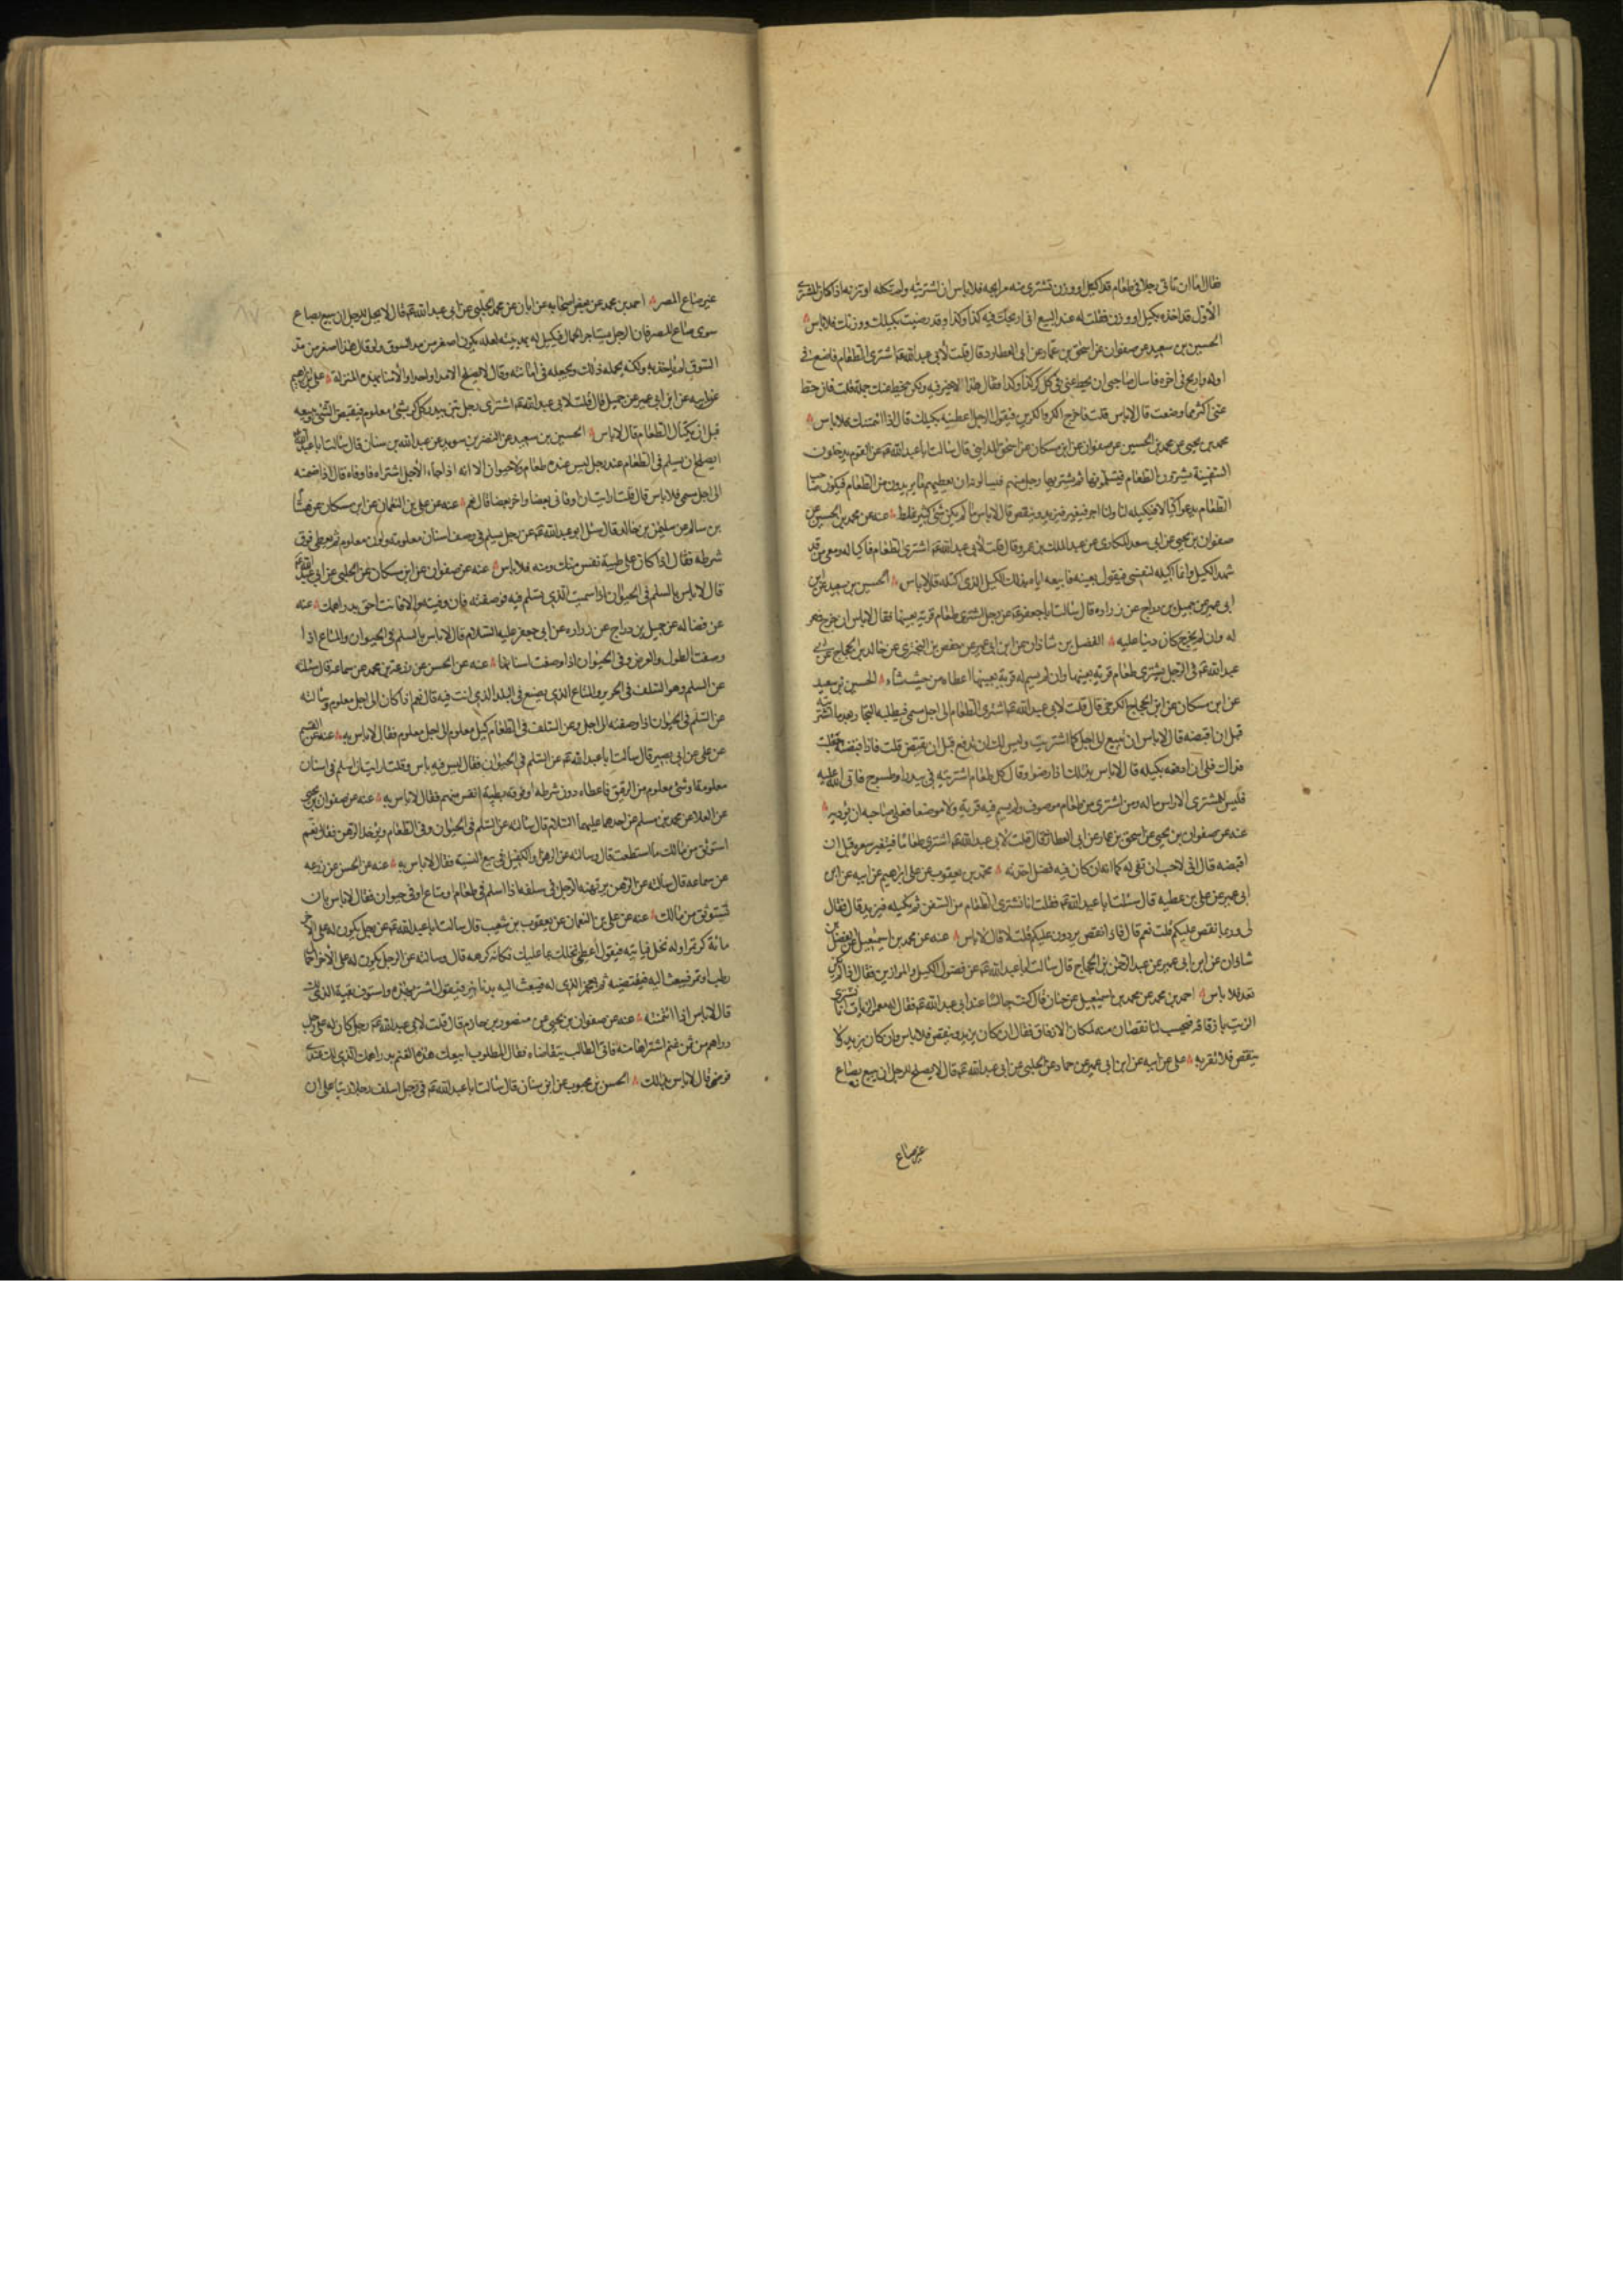 فقال اما ان تاتى رجلا فى طعام قد اكتيل او وزن تشترى منه مرابحه فلا باس ان اشتريته ولم تكله او تزنه اذا كان المشترى
الاول قد اخذه بكيل او وزن فقلت له عند البيع انى اربحك فيه كذا وكذا وقد رضيت بكيلك ووزنك فلا باس
الحسين بن سعيد عن صفوان عن اسحق بن عمار عن ابى العطارد قال قلت لأبى عبد الله ع اشترى الطعام فاضع فى
اوله واربح فى اخره فاسال صاحبى ان يحط عنى فى كل كر كذا وكذا فقال هذا لا خير فيه ولكن يحط عنك جملة قلت فان حط
عنى اكثر مما وضعت قال لاباس قلت فاخرج الكر والكرين فيقول الرجل اعطنيه بكيلك قال اذا ائتمنك فلا باس
محمد بن يحيى عن محمد بن الحسين عن صفوان عن ابن مسكان عن اسحق المداينى قال سالت ابا عبد الله ع عن القوم يدخلون
السفينة يشترون الطعام فيتساومونها ثم يشتريها رجل منهم فيسالونه ان يعطيهم ما يريدون من الطعام فيكون صاحب
الطعام هو الذى يدفعه اليهم ويقبض الثمن قال لاباس
صفوان بن يحيى عن ابى سعيد المكارى عن عبد الملك بن عمرو قال قلت لأبى عبد الله ع اشترى الطعام فاكتاله ومعى من قد
شهد الكيل وانما اكيله لنفسى فيقول بعنيه فابيعه اياه بذلك الكيل الذى اكتلته قال لاباس الحسين بن سعيد عن ابن
ابى عمير عن جميل بن دراج عن زراره قال سالت ابا جعفر ع عن رجل اشترى طعام قرية بعينها فقال لاباس ان خرج فهو
له وان لم يخرج كان دينا عليه الفضل بن شاذان عن ابن ابى عمير عن حفص بن البخترى عن خالد بن الحجاج عن ابى
عبد الله ع فى الرجل يشترى طعام قرية بعينها وان لم يسم له قرية بعينها اعطاه من حيث شاء الحسين بن سعيد
عن ابن مسكان عن ابن الحجاج الكرخى قال قلت لابى عبد الله ع اشترى الطعام الى اجل مسمى فيطلبه التجار بعد ما اشتريته
قبل ان اقبضه قال لاباس ان تبيع الى اجل كما اشتريت وليس لك ان تدفع قبل ان تقبض قلت فاذا قبضته جعلت
فداك فلى ان ادفعه بكيله قال لاباس بذلك اذا رضوا وقال كل طعام اشتريته فى بيدر او طسوج فاتى الله عليه
فليس للمشترى الا راس ماله ومن اشترى من طعام موصوف ولم يسم فيه قرية ولا موضعا فعلى صاحبه ان يؤديه
عنه عن صفوان بن يحيى عن اسحق بن عمار عن ابى العطارد قال قلت لأبى عبد الله ع اشترى طعاما فيتغير سعره قبل ان
اقبضه قال انى لاحب ان تفى له كما انه ان كان فيه فضل اخذته محمد بن يعقوب عن على بن ابراهيم عن ابيه عن ابن
ابى عمير عن على بن عطيه قال سئلت ابا عبد الله ع فقلت انا نشترى الطعام من السفن ثم نكيله فيزيد قال فقال
لى وربما نقص عليكم قلت نعم قال فاذا نقص يردون عليكم قلت لا قال لاباس عنه عن محمد بن اسمعيل عن الفضل بن
شاذان عن ابن ابى عمير عن عبد الرحمن بن الحجاج قال سالت ابا عبد الله ع عن فضول الكيل والموازين فقال اذا لم يكن
تعد فلا باس احمد بن محمد عن محمد بن اسمعيل عن حنان قال كنت جالسا عند ابى عبد الله ع فقال له معمر الزيات انا نشترى
الزيت بازقاقه فيحسب لنا نقصان منه لمكان الازقاق فقال ان كان يزيد وينقص فلا باس وان كان يزيد ولا
ينقص فلا تقربه على عن ابيه عن ابن ابى عمير عن حماد عن الحلبى عن ابى عبد الله ع قال لا يصلح للرجل ان يبيع بصاع
غير صاع
غير صاع المصر احمد بن محمد عن بعض اصحابه عن ابان عن محمد الحلبى عن ابى عبد الله ع قال لا يحل للرجل ان يبيع بصاع
سوى صاع المصر فان الرجل يستاجر الحمال فيكيل له بمد بيته لعله يكون اصغر من مد السوق ولو قال هذا اصغر من مد
السوق لم ياخذ به ولكنه يحمله ذلك ويجعله فى امانته وقال لا يصلح الا مد واحد والامنان بهذه المنزلة على بن ابراهيم
عن ابيه عن ابن ابى عمير عن جميل قال قلت لأبى عبد الله ع اشترى رجل تبن بيدر كل كر بشئ معلوم فيقبض التبن ويبيعه
قبل ان يكتال الطعام قال لاباس الحسين بن سعيد عن النضر بن سويد عن عبد الله بن سنان قال سالت ابا عبد الله
ايصلح ان يسلم فى الطعام عند رجل ليس عنده طعام ولا حيوان الا انه اذا جاء الأجل اشتراه فاوفاه قال اذا ضمنه
الى اجل مسمى فلا باس قال قلت ارايت ان اوفانى بعضا واخر بعضا قال نعم عنه عن على بن النعمان عن ابن مسكان عن
بن سالم عن سليمن بن خالد قال سئل ابو عبد الله ع عن رجل يسلم فى وصف اسنان معلومة ولون معلوم ثم يعطى فوق
شرطه فقال اذا كان على طيبة نفس منك ومنه فلا باس عنه عن صفوان عن ابن مسكان عن الحلبى عن ابى عبد الله
قال لاباس بالسلم فى الحيوان اذا سميت الذى يسلم فيه فوصفته فان وفيته والا فانت احق بدراهمك عنه
عن فضاله عن جميل بن دراج عن زراره عن ابى جعفر عليه السلام قال لاباس بالسلم فى الحيوان والمتاع اذا
وصفت الطول والعرض وفى الحيوان اذا وصفت اسنانها عنه عن الحسن عن زرعة بن محمد عن سماعة قال سئلته
عن السلم وهو السلف فى الحرير والمتاع الذى يصنع فى البلد الذى انت فيه قال نعم اذا كان الى اجل معلوم وسالته
عن السلم فى الحيوان اذا وصفته الى اجل وعن السلف فى الطعام كيل معلوم الى اجل معلوم فقال لاباس به عنه عن القسم
عن على عن ابى بصير قال سالت ابا عبد الله ع عن السلم فى الحيوان فقال ليس فيه باس وقلت ارايت ان اسلم فى اسنان
معلومة او شئ معلوم من الرقيق فاعطاه دون شرطه او فوقه بطيبة انفس منهم فقال لاباس به عنه عن صفوان بن يحيى
عن العلا عن محمد بن مسلم عن احدهما عليهما السلام قال سالته عن السلم فى الحيوان وفى الطعام ويؤخذ الرهن فقال نعم
استوثق من مالك ما استطعت قال وسالته عن الرهن والكفيل فى بيع النسية فقال لاباس به عنه عن الحسن عن زرعه
عن سماعه قال سالته عن الرهن يرتهنه الرجل فى سلفه اذا اسلم فى طعام او متاع او فى حيوان فقال لاباس بان
تستوثق من مالك عنه عن على بن النعمان عن يعقوب بن شعيب قال سالت ابا عبد الله ع عن رجل يكون له على الاخر
مائة كر تمر وله نخل فياتيه فيقول اعطنى نخلك بما عليك فكانه كرهه قال وسالته عن الرجل يكون له على الاخر احمال
رطب او تمر فيبعث اليه
قال لاباس اذا ائتمنته عنه عن صفوان بن يحيى عن منصور بن حازم قال قلت لابى عبد الله ع رجل كان له على رجل
دراهم من ثمن غنم اشتراها منه فاتى الطالب يتقاضاه فقال المطلوب ابيعك هذه الغنم بدراهمك الذى لك عندى
فرضى قال لاباس بذلك الحسن بن محبوب عن ابن سنان قال سالت ابا عبد الله ع عن رجل اسلف رجلا زيتا على ان